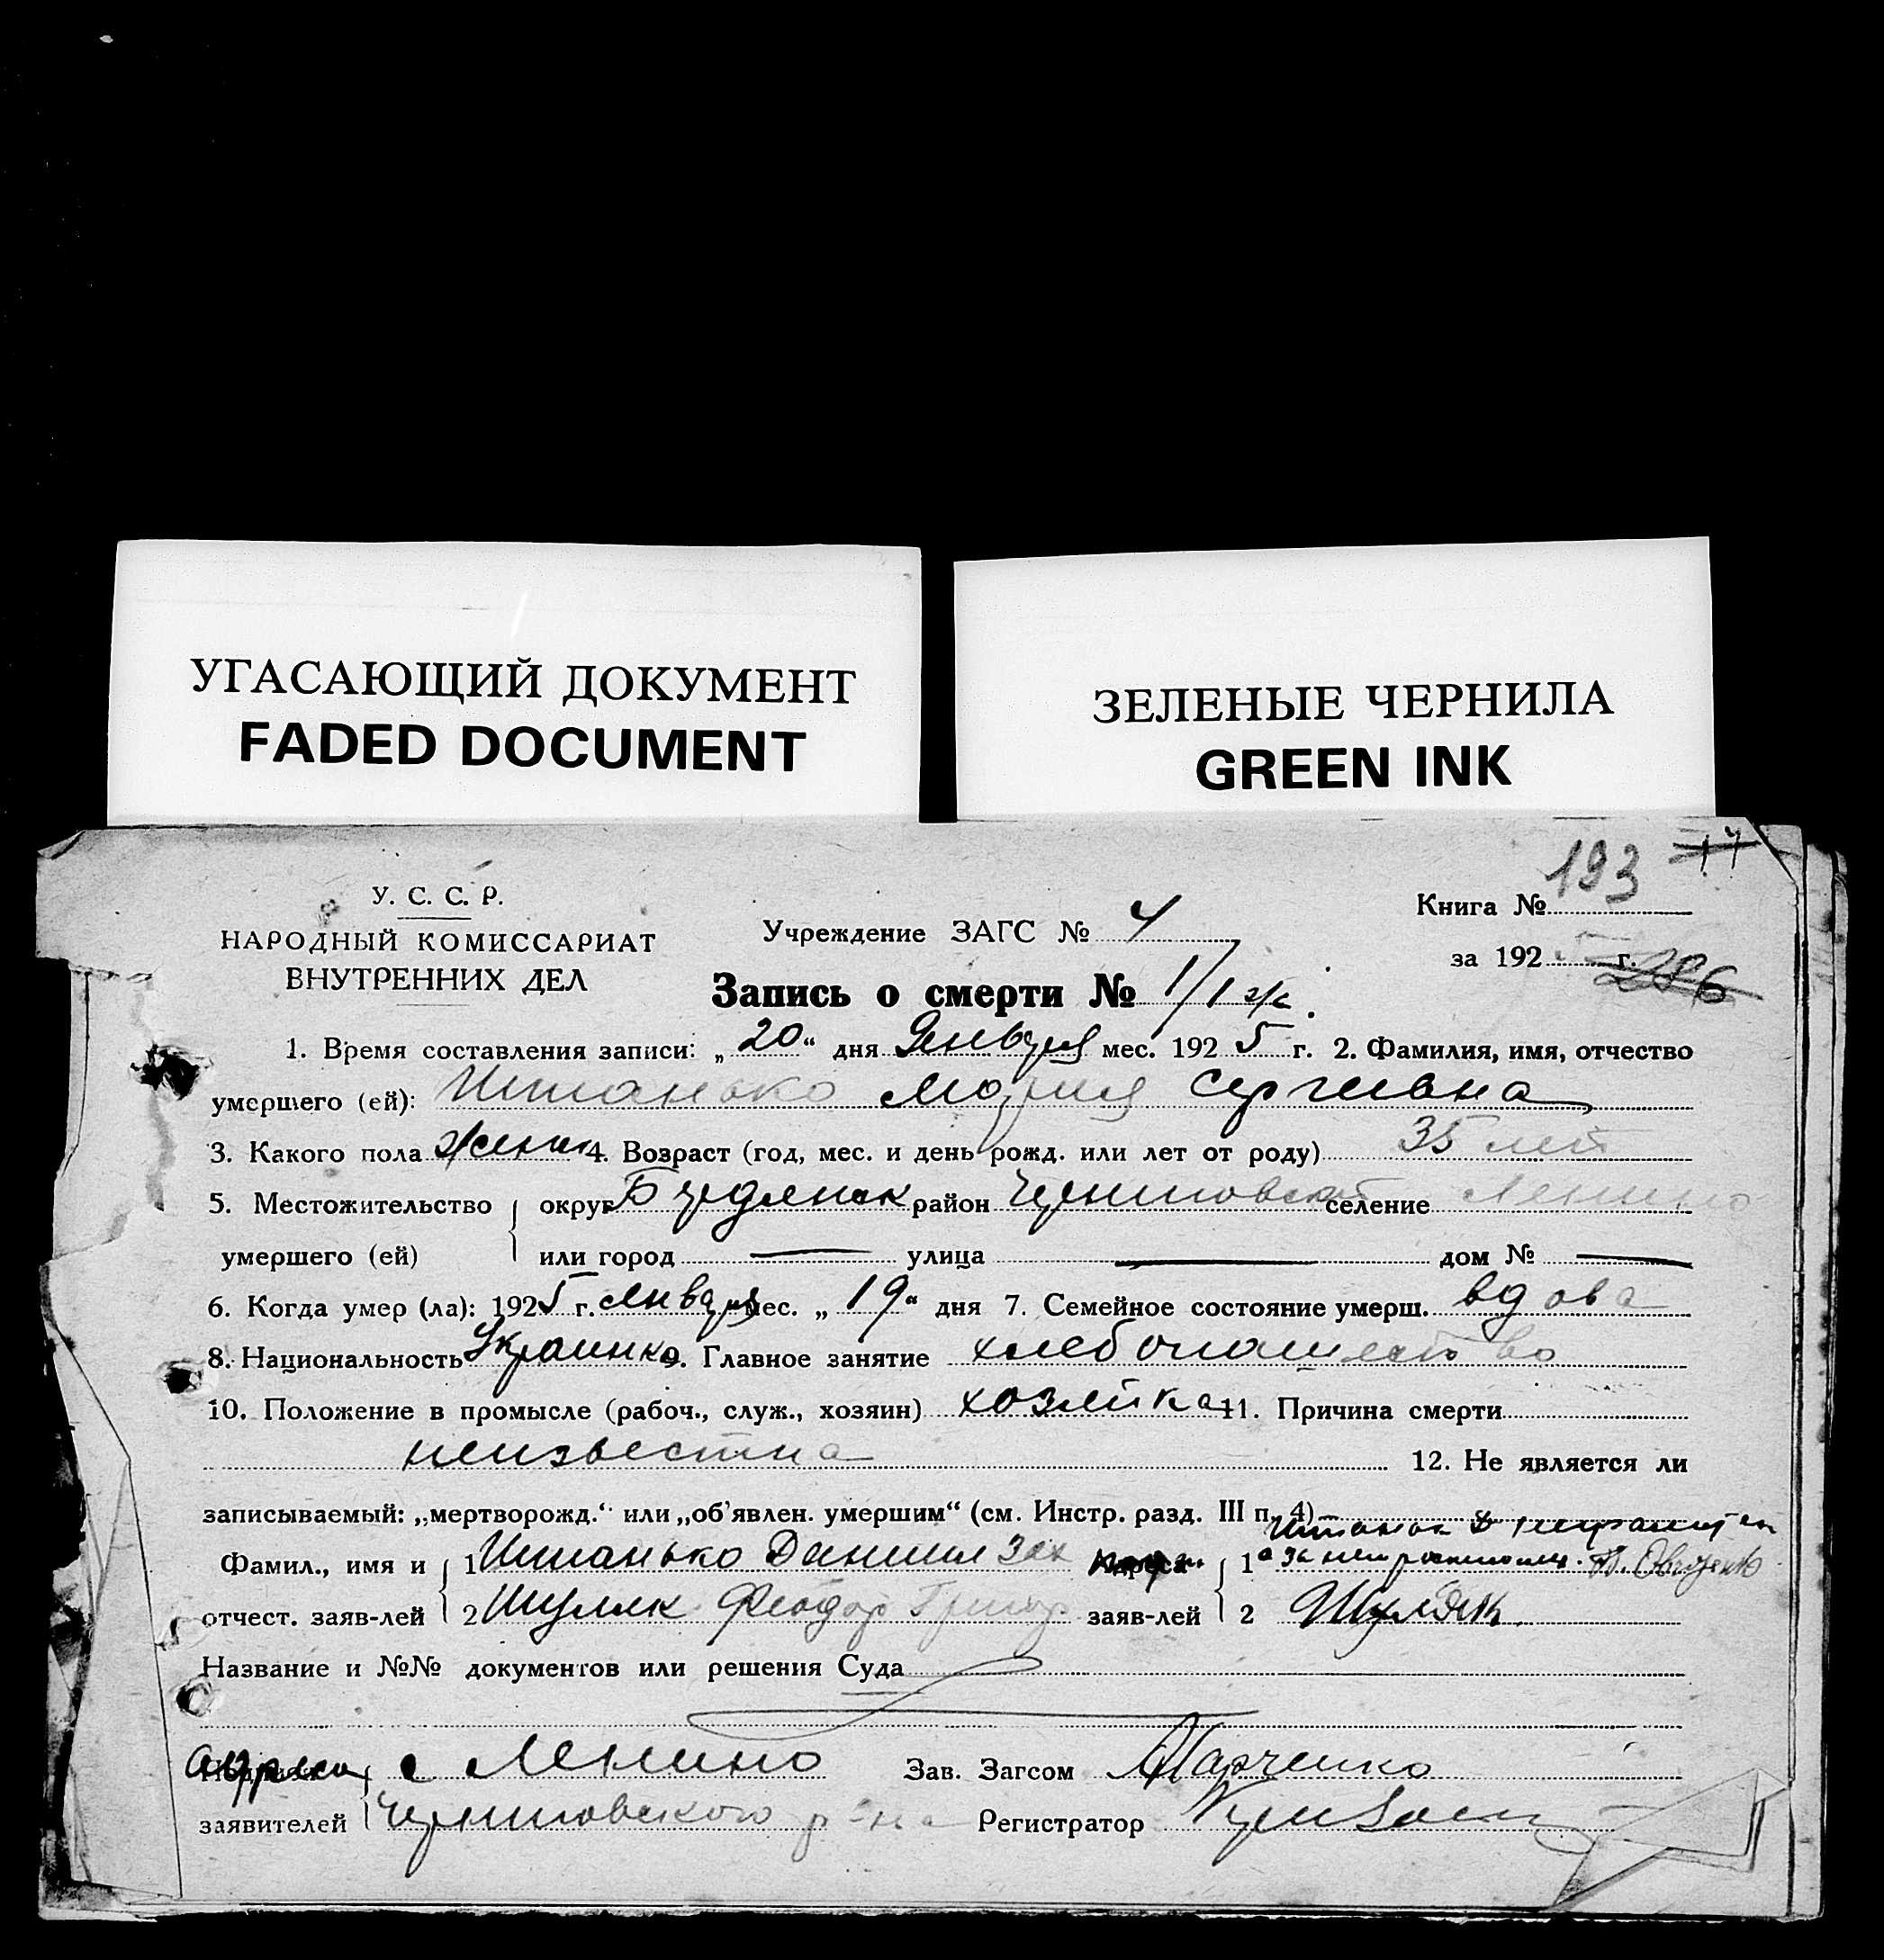 УГАСАЮЩИЙ ДОКУМЕНТ
FADED DOCUMENT
ЗЕЛЕНЫЕ ЧЕРНИЛА
GREEN INK
У. С. С. Р.
НАРОДНЫЙ КОМИССАРИАТ
ВНУТРЕННИХ ДЕЛ
Учреждение ЗАГС № 4
Книга № 193
за 192 5 г.
286
Запись о смерти № 1/1
1. Время составления записи: „20“ дня Января мес. 192 5 г. 2. Фамилия, имя, отчество
умершего (ей): Иштанько Мария Сергиевна
3. Какого пола женск 4. Возраст (год, мес. и день рожд. или лет от роду) 35 лет
5. Местожительство округ Бердянск район Черниговской селение Ленино
умершего (ей) или город — улица — дом № —
6. Когда умер (ла): 1925 г. Января мес. „19“ дня 7. Семейное состояние умерш. вдова
8. Национальность Украинка 9. Главное занятие хлебопашество
10. Положение в промысле (рабоч., служ., хозяин) хозяйка 11. Причина смерти
неизвестна 12. Не является ли
записываемый: „мертворожд.“ или „об'явлен. умершим“ (см. Инстр. разд. III п. 4)
Фамил., имя и 1 Иштанько Даниил Зах Адреса 1 а за
отчест. заяв-лей 2 Шуляк Феодор Григор заяв-лей 2 Шуляк
Название и №№ документов или решения Суда
адреса с Ленино Зав. Загсом Марченко
заявителей Черниговского р-на Регистратор